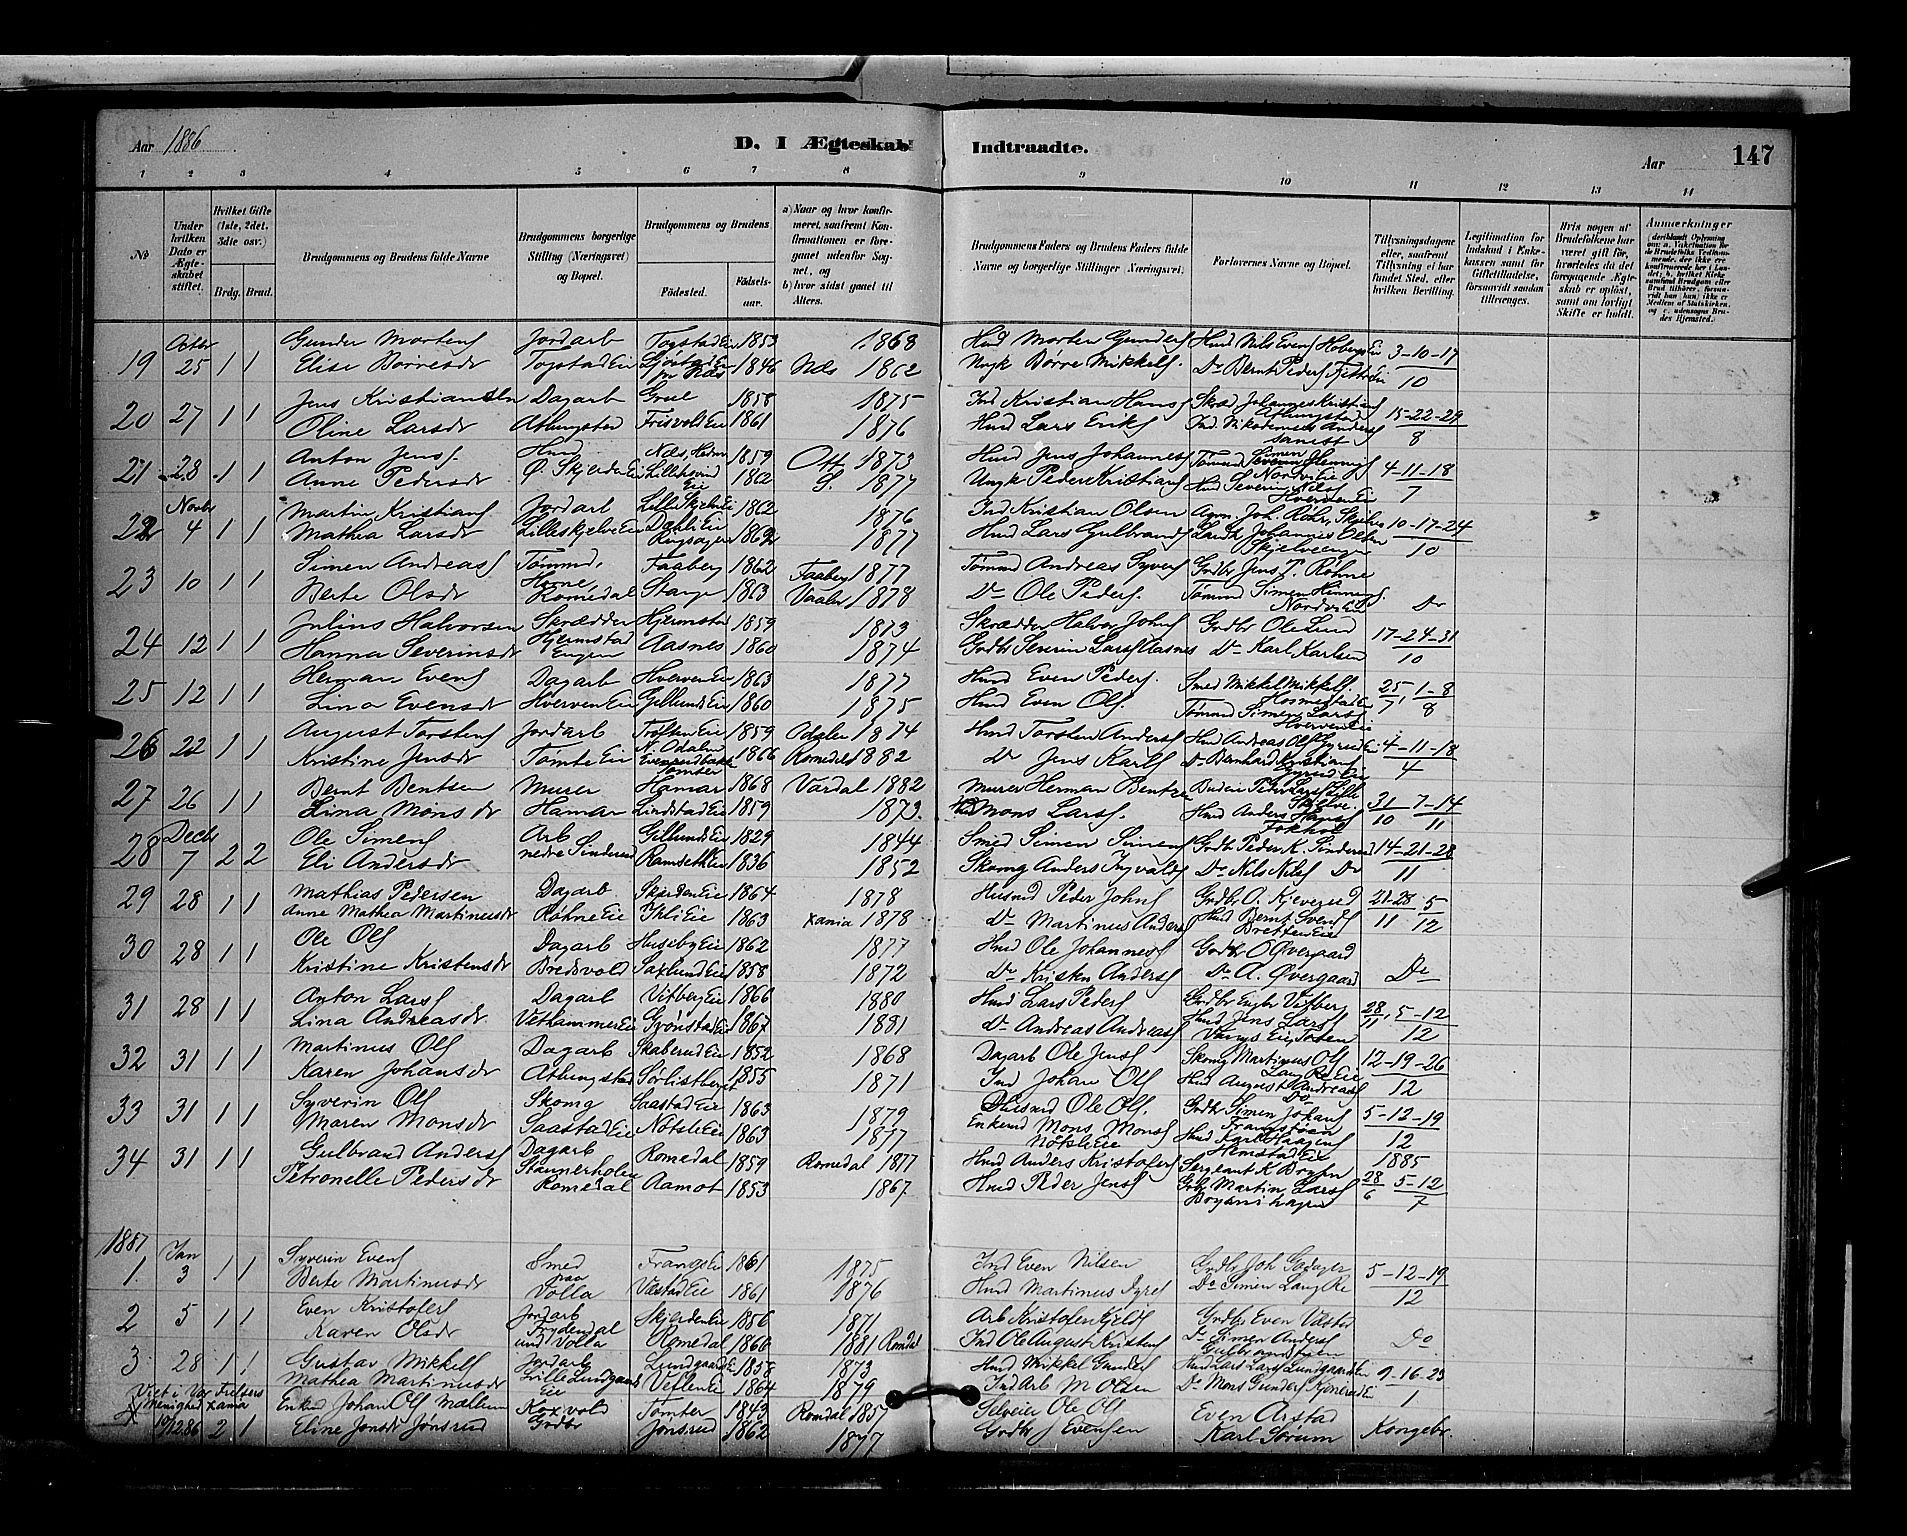 Aar 1886
D. I Ægteskab Indtraadte.
Aar
147
1 2 3 4 5 6 7 8 9 10 11 12 13 14
No
Under hvilken Dato er Ægteskabet stiftet.
Hvilket Gifte (1ste, 2det, 3dte osv.)
Brdg. Brud.
Brudgommens og Brudens fulde Navne
Brudgommens borgerlige Stilling (Næringsvei) og Bopæl.
Brudgommens og Brudens
Fødested. Fødselsaar.
a) Naar og hvor konfirmeret, saafremt Konfirmationen er foregaaet udenfor Sognet, og
b) hvor sidst gaaet til Alters.
Brudgommens Faders og Brudens Faders fulde Navne og borgerlige Stillinger Næringsvei.
Forlovernes Navne og Bopæl.
Tillysningsdagene eller, saafremt Tillysning ei har fundet Sted, efter hvilken Bevilling.
Legitimation for Indskud i Enkekassen samt for Giftetilladelse, forsaavidt saadan tiltrænges.
Hvis nogen af Brudefolkene har været gift før, hvorledes da det foregaaende Ægteskab er opløst, samt om lovligt Skifte er holdt.
Anmærkninger
Octbr
19 25 1 1 Gunder Mortens Jordarb Togstad Eie 1853 1868 Hmd Morten Gunders Hmd Nils Evens Hoberg Eie 3-10-17
Elise Børresdr Togstad Eie 1846 Næs 1862 Børre Mikkels. Do Bernt Peders 10
20 27 1 1 Jens Kristiansen Dagarb Grue 1858 1875 Ind Kristian Hans Skræd Johannes Kristians 15-22-29
Oline Larsdr Athungstad Frisvold Eie 1861 1876 Hmd Lars Eriks Ind Nikodemus Anders 8
21 28 1 1 Anton Jens. Hmd Næs, Hedm 1859 Ott 1873 Hmd Jens Johannes Tømmd Simen Hennings 4-11-18
Anne Pedersdr Ø. Skjerden Eie Eie 1862 S. 1877 Ungk Peder Kristians Hmd Severin Nils Hverven Eie 7
Novbr
22 4 1 1 Martin Kristians Jordarb Lilleskjelve Eie 1862 1876 Ind Kristian Olsen Agron. Joh. Röhr, 10-17-24
Mathea Larsdr Lilleskjelve Eie Dæhli Eie Ringsager 1862 1877 Hmd Lars Gulbrands Landh Johannes Olsen Skjelveengen 10
23 10 1 1 Simen Andreas Tømmd. Faaberg 1862 Faaberg 1877 Tømmd Andreas Syvers Grdbr Jens P. Røhne
Berte Olsdr Horne Romedal Stange 1863 Vaaler 1878 Do Ole Peders. Tømmd Simen Hennings. Nordvi Eie Do
24 12 1 1 Julius Halvorsen Skrædder Hjermstad 1859 1873 Skrædder Halvor Johns Grdbr Ole Lund 17-24-31
Hanna Severinsdr Hjermstad Engen Aasnes 1860 1874 Grdbr Severin Lars Aasnes Do Karl Karlsen 10
25 12 1 1 Herman Evens Dagarb Hverven Eie 1863 1877 Hmd Even Peders. Smed Mikkel Mikkels. 25/7, 1-8
Lina Evensdr Hverven Eie Gjellund Eie 1860 1875 Hmd Even Ols. Tømmd Simen Lars Hverven Eie 8
26 22 1 1 August Torstens Jordarb N. Odalen 1859 Odalen 1874 Hmd Torsten Anders Hmd Andreas Ols 4-11-18
Kristine Jensdr Tomte Eie Tomter 1866 Romedal 1882 Do Jens Karls Do Bernhard Kristians 4
27 26 1 1 Bernt Bentsen Murer Hamar 1868 Vardal 1882 Murer Herman Bentzen Lille Skjelve. 31/10 7-14
Lina Monsdr Hamar Lindstad Eie 1859 1873. Hmd Mons Lars. Hmd Anders Hans Fokhol 11
Decbr
28 7 2 2 Ole Simens Arb Gillund Eie 1829 1844 Smed Simen Simens Grdbr Peder K. Sinderud 14-21-28
Eli Andersdr nedre Sinderud Ramseth Eie 1836 1852 Skomg Anders Ingvalds Do Nils Nils Do 11
29 28 1 1 Mathias Pedersen Dagarb Skjerden Eie 1864 1878 Husmd Peder Johns Grdbr A. Kjeverud 21-28/11 5/12
Anne Mathea Martinusdr Røhne Eie Ihli Eie 1863 Xania 1878 Do Martinus Anders Hmd Bernt Svends
30 28 1 1 Ole Ols Dagarb Huseby Eie 1862 1877 Hmd Ole Johannes Grdbr O Øvergaard
Kristine Kristensdr Bredvold Saxlund Eie 1858 1872 Do Kristen Anders Do A. Øvergaard Do
31 28 1 1 Anton Lars Dagarb Vitberg Eie 1866 1880 Hmd Lars Peders Grdbr Engbr Vitberg 28/11, 5-12
Lina Andreasdr. Vethammer Eie Grønstad Eie 1867 1881 Do Andreas Andreas Hmd Jens Lars Toten 12
32 31 1 1 Martinus Ols Dagarb Skaberud Eie 1852 1868 Dagarb Ole Jens Skomg Martinus Ols 12-19-26
Karen Johansdr Athungstad Sørlistberget 1855 1871 Ind Johan Ols Hmd August Andreas Do 12
33 31 1 1 Syverin Ols Skomg Saastad Eie 1863 1879 Husmd Ole Ols. Grdbr Simen Johans Frangstøen 5-12-19
Maren Monsdr Saastad Eie Nøtsle Eie 1863 1877 Enkemd Mons Mons Nøtsle Eie Hmd Karl Haagens Hemstad Eie 12
34 31 1 1 Gulbrand Anders Dagarb Romedal 1859 Romedal 1877 Hmd Anders Kristofers Sergeant K Bryhn 1885
Petronelle Pedersdr Romedal Aamot 1853 1867. Hmd Peder Jens Grdbr Martin Lars 28/6 5-12/7
1887
Jan
1 3 1 1 Syverin Evens Smed Frangs Eie 1861 1875 Ind Even Nilsen Grdbr Joh 5-12-19
Berte Martinusdr paa Volla Vestad Eie 1861 1876 Hmd Martinus Do Simen Lang Re 12
2 5 1 1 Even Kristofers Jordarb Skjerden Eie 1856 1871 Arb Kristofer Kjelds Grdbr Even Vestad
Karen Olsdr Frydendal und Volla Romedal 1866 1881 Romdal Ind Ole August Kristens Do Simen Anders Do
3 28 1 1 Gustav Mikkels Jordarb Lundgaard Eie 1858 1873 Hmd Mikkel Gunders Hmd Lars Lars Lundgaard Eie 9-16-23
Mathea Martinusdr Lille Lundgaards Eie Veflen Eie 1864 1879 Ind Arb M Olsen Do Mons Gunders 1
Viet i Vor Frelsers Menighed Xania
4 19/12 86 2 1 Enkmd Johan Ols Mælum Koxvold Tomter 1843 Romdal 1857 Selveier Ole Ols Even Arstad
Eline Jonsdr Jønsrud Grdbr Jønsrud 1862 1877 Grdbr J Evensen Karl Sørum Kongebr.